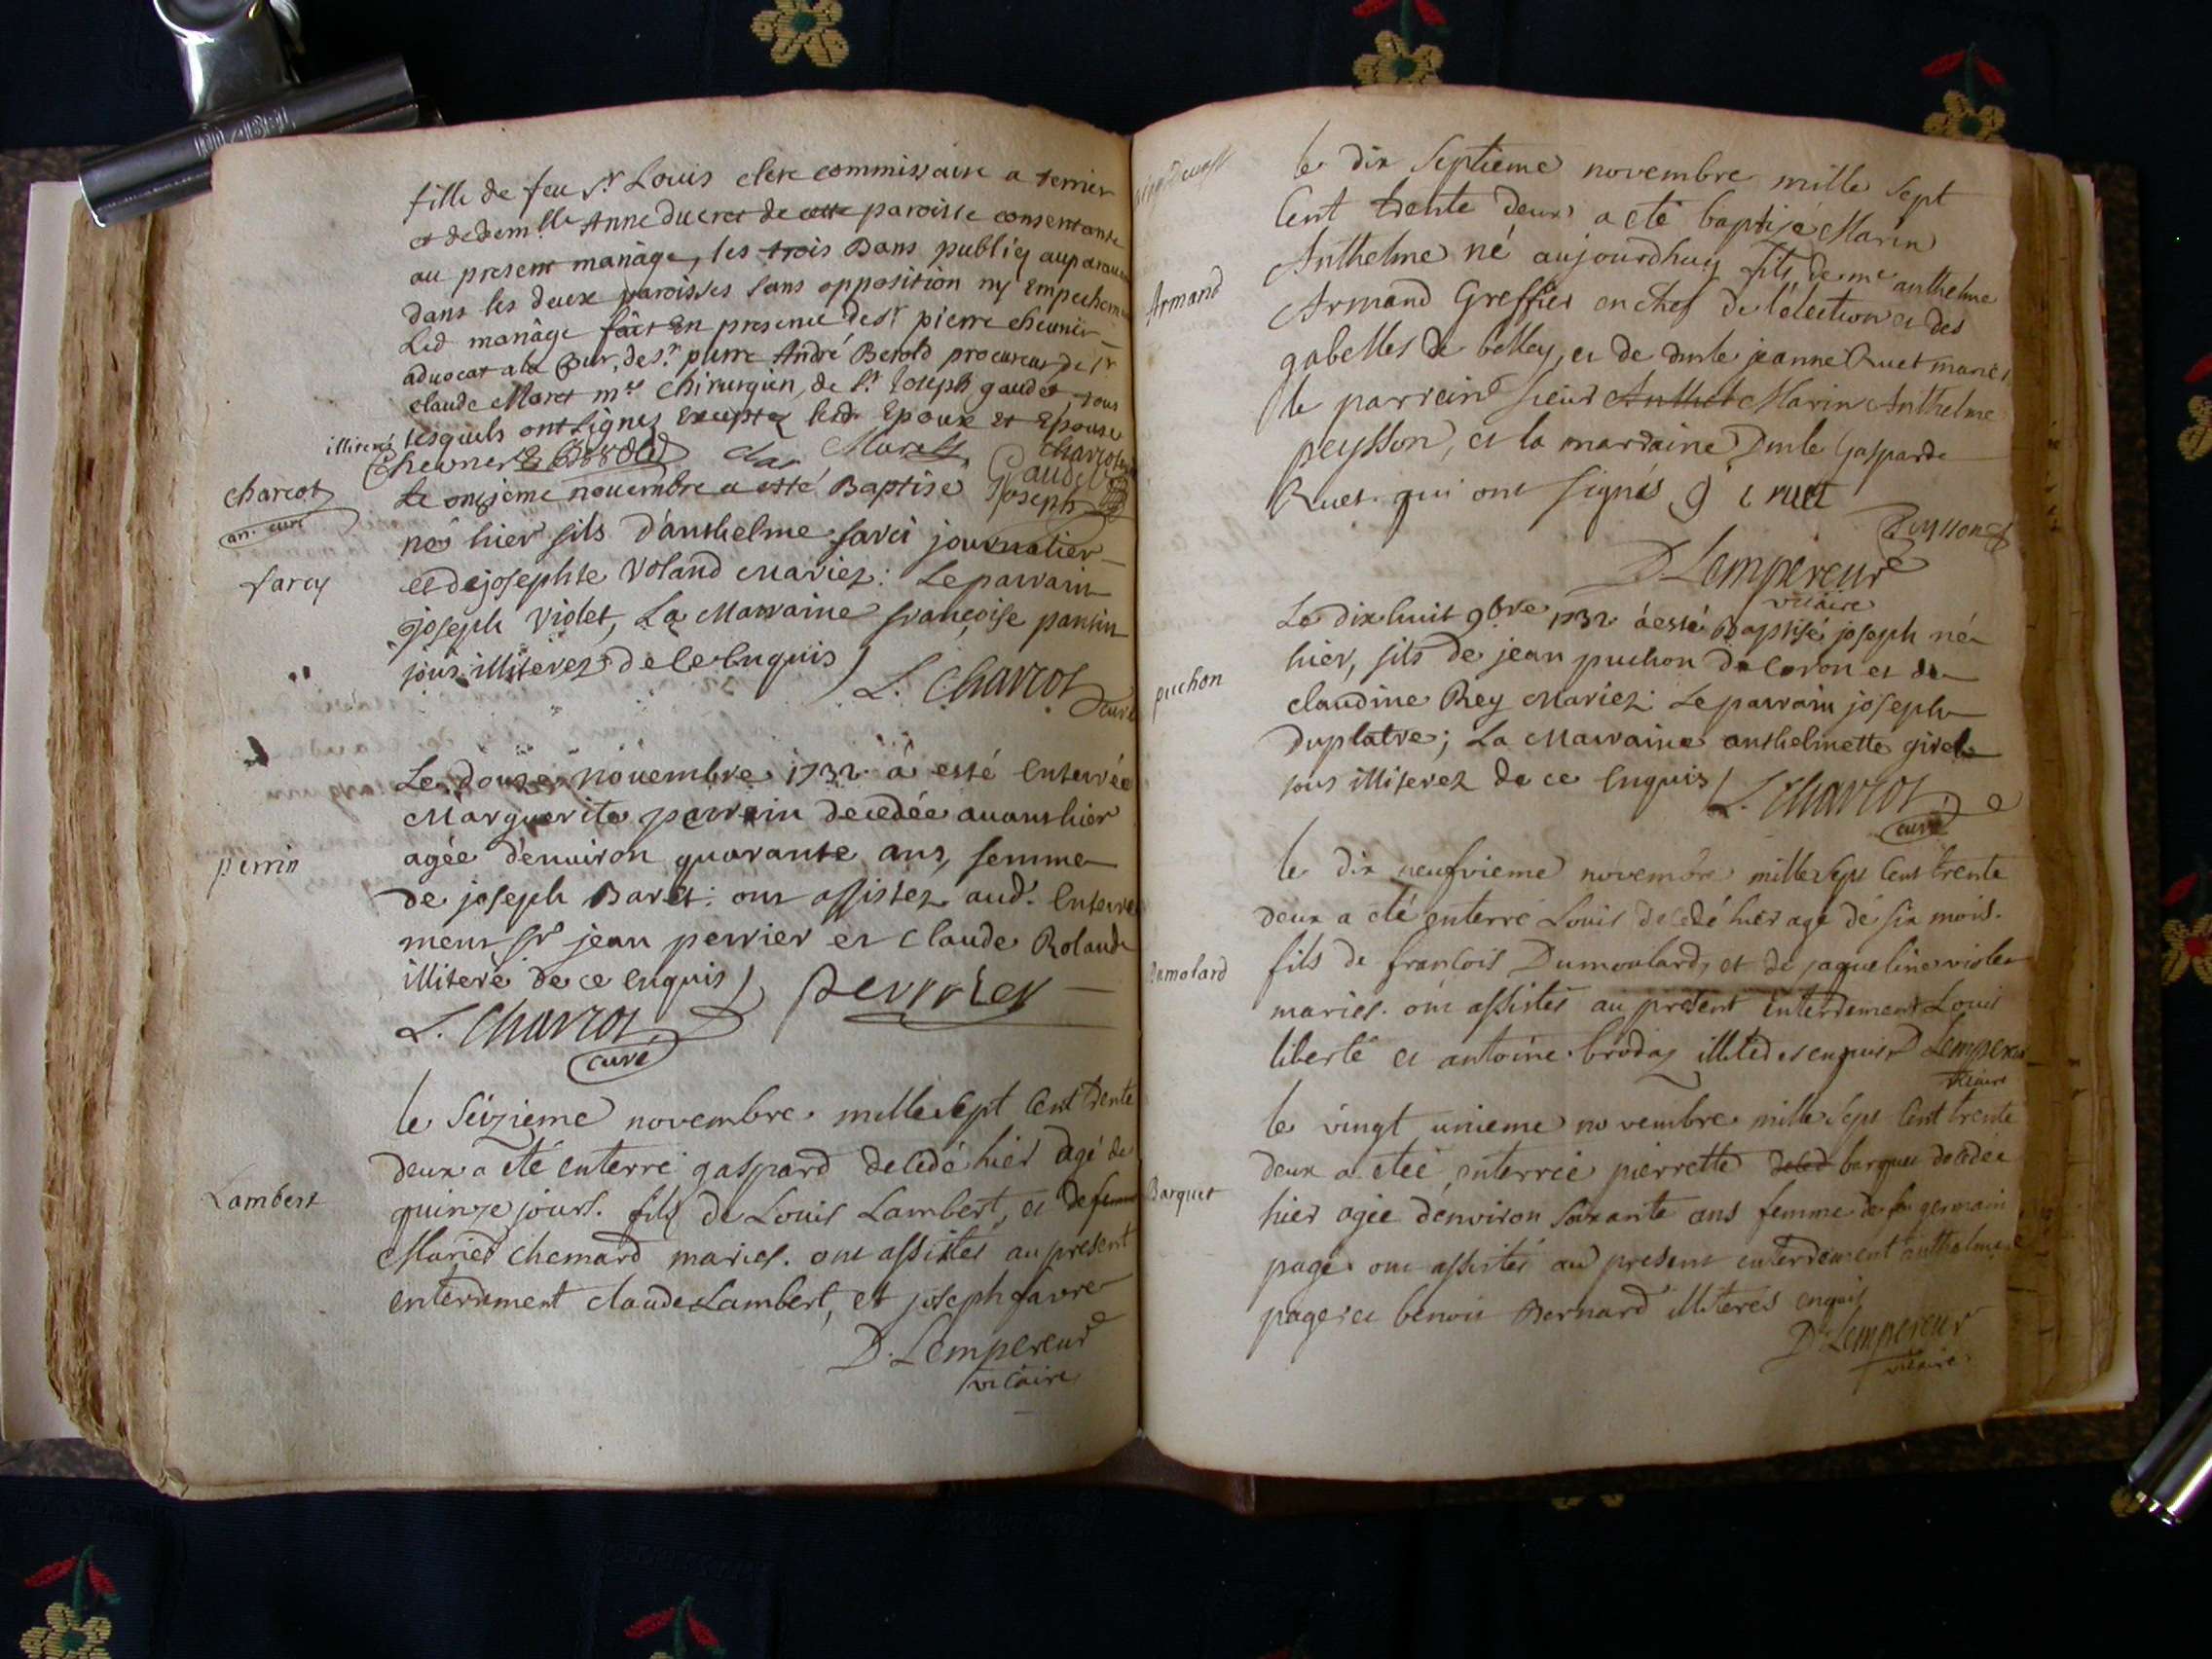 fille de feu Sr Louis clerc commissaire a terrier
et de demlle Anne Ducret de cette paroisse consentante
au present mariage, les trois Bans publiez auparavant
dans les deux paroisses sans opposition ny Empechement
Led mariage fait En presence de Sr pierre cheunier
advocat a la Cour, de Sr pierre André Berold procureur, de Sr
claude Maret me chirurgien, de Sr Joseph gaudet, tous
lesquels ont signez Excepté led. Epoux et Epouse
illiterez
Maret
Charcot
Gaudet
Joseph
charcot
an. curé
Le onzieme novembre a esté Baptisé
né hier fils d'anthelme sarci journalier
et de josephte Voland Mariez: Le parrain
joseph Violet, La Marraine françoise pantin
tous illiterez de ce Enquis
L. Charcot
curé
Sarcy
Le douze novembre 1732 a esté Enterrée
Marguerite perrin decedée avanthier
agée d'environ quarante ans, femme
de joseph Baret: ont assistez aud. Enterre
ment Sr jean perrier et Claude Roland
illiteré de ce Enquis
perrier
L. Charcot
curé
perrin
le Seizieme novembre mille Sept Cent trente
deux a eté enterré gaspard decedé hier agé de
quinze jours. fils de Louis Lambert, et de
Marie chemard mariés. ont assistés au present
enterrement claude Lambert, et joseph favre
D. Lempereur
vicaire
Lambert
le dix Septieme novembre mille Sept
Cent trente deux a eté baptisé Marin
Anthelme né aujourdhuy fils de me anthelme
Armand Greffier en chef de l'election et des
gabelles de belley, et de dmle jeanne Ruet mariés
le parrain sieur Anthel Marin Anthelme
peysson, et la marraine Dmle Gasparde
Ruet qui ont signés g ruet
Peysson
D Lempereur
vicaire
Armand
Le dix huit 9bre 1732 a esté Baptisé joseph né
hier, fils de jean puchon de Coron et de
claudine Rey Mariez: Le parrain joseph
Duplatre; La Marraine anthelmette girel
tous illiterez de ce Enquis
L. Charcot
curé
puchon
le dix neufvieme novembre mille Sept Cent trente
deux a eté enterré Louis decedé hier agé de six mois.
fils de francois Dumoulard, et de jaqueline violet
mariés. ont assistés au present enterrement Louis
liberté et antoine brodaz D Lempereur
vicaire
Dumolard
le vingt unieme novembre mille Sept Cent trente
deux a eteé enterrée pierrette deced barquet decedée
hier agée d'environ soixante ans femme de feu germain
page. ont assistés au present enterrement anthelme
page et benoit Bernard illiterés enquis
D Lempereur
vicaire
Barquet